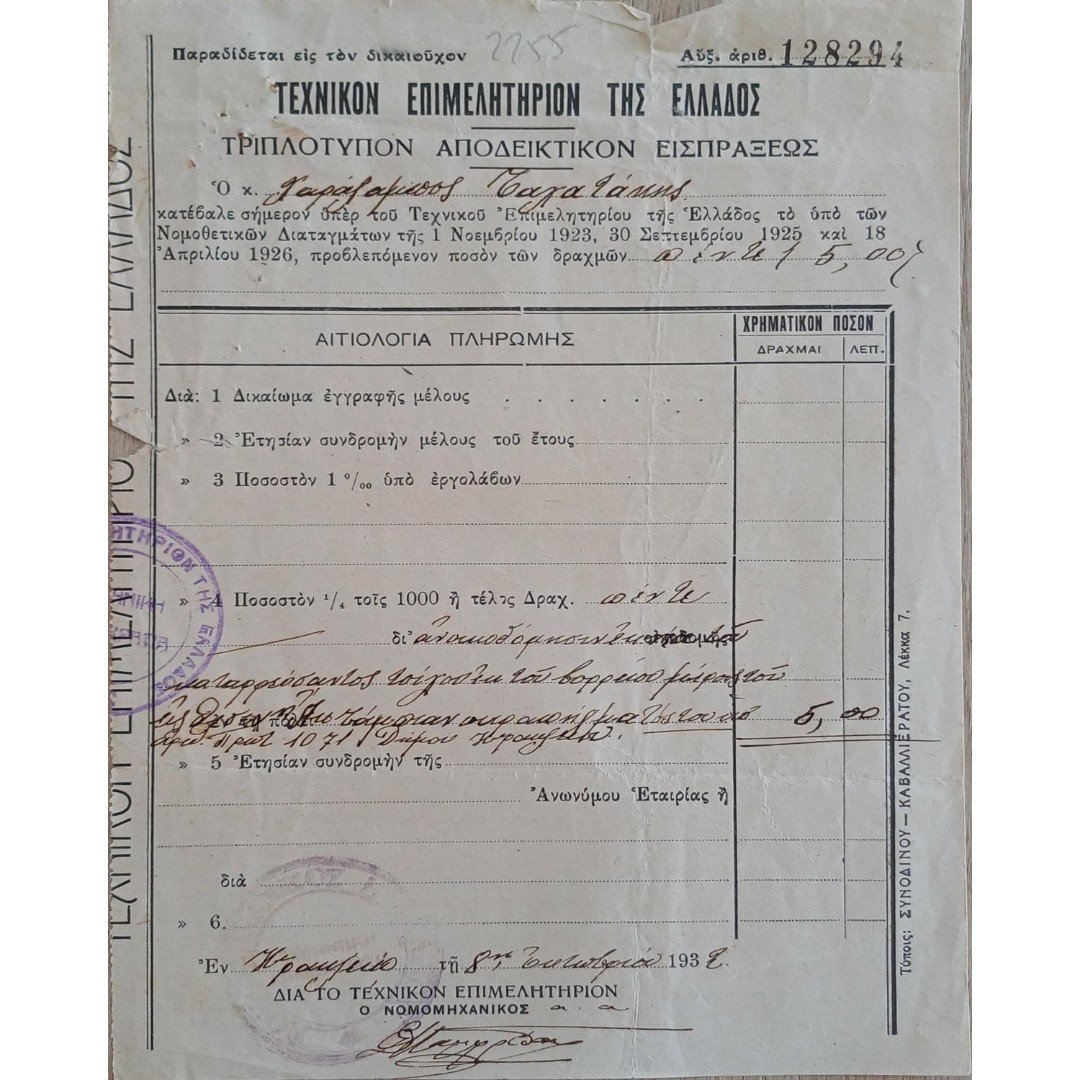 2255
Παραδίδεται εἰς τὸν δικαιοῦχον
Αὔξ. ἀριθ. 128294
ΤΕΧΝΙΚΟΝ ΕΠΙΜΕΛΗΤΗΡΙΟΝ ΤΗΣ ΕΛΛΑΔΟΣ
ΤΡΙΠΛΟΤΥΠΟΝ ΑΠΟΔΕΙΚΤΙΚΟΝ ΕΙΣΠΡΑΞΕΩΣ
Ὁ κ. Χαράλαμπος
κατέβαλε σήμερον ὑπὲρ τοῦ Τεχνικοῦ Ἐπιμελητηρίου τῆς Ἑλλάδος τὸ ὑπὸ τῶν
Νομοθετικῶν Διαταγμάτων τῆς 1 Νοεμβρίου 1923, 30 Σεπτεμβρίου 1925 καὶ 18
Ἀπριλίου 1926, προβλεπόμενον ποσὸν τῶν δραχμῶν πέντε 5,00
ΑΙΤΙΟΛΟΓΙΑ ΠΛΗΡΩΜΗΣ
ΧΡΗΜΑΤΙΚΟΝ ΠΟΣΟΝ
ΔΡΑΧΜΑΙ ΛΕΠ.
Διὰ: 1 Δικαίωμα ἐγγραφῆς μέλους . . . . . . .
» 2 Ἐτησίαν συνδρομὴν μέλους τοῦ ἔτους
» 3 Ποσοστὸν 1 ⁰/₀₀ ὑπὸ ἐργολάβων
» 4 Ποσοστὸν ¹/₄ τοῖς 1000 ἢ τέλος Δραχ. πέντε
δι' ἀνοικοδόμησιν τοῦ
καταρρεύσαντος τοῦ βορρείου μέρους τοῦ
εἰς 5,00
ἀριθ. πρωτ 1071 Δήμου Ἡρακλείου.
» 5 Ἐτησίαν συνδρομὴν τῆς
Ἀνωνύμου Ἑταιρίας ἢ
διὰ
» 6.
Ἐν Ἡρακλείῳ τῇ 8ῃ Ὀκτωβρίου 1932.
ΔΙΑ ΤΟ ΤΕΧΝΙΚΟΝ ΕΠΙΜΕΛΗΤΗΡΙΟΝ
Ο ΝΟΜΟΜΗΧΑΝΙΚΟΣ α. α
Τύποις: ΣΥΝΟΔΙΝΟΥ — ΚΑΒΑΛΛΙΕΡΑΤΟΥ, Λέκκα 7.
ΤΕΧΝΙΚΟΝ ΕΠΙΜΕΛΗΤΗΡΙΟ ΤΗΣ ΕΛΛΑΔΟΣ
ΗΤΗΡΙΟΝ ΤΗΣ ΕΛΛΑΔΟΣ